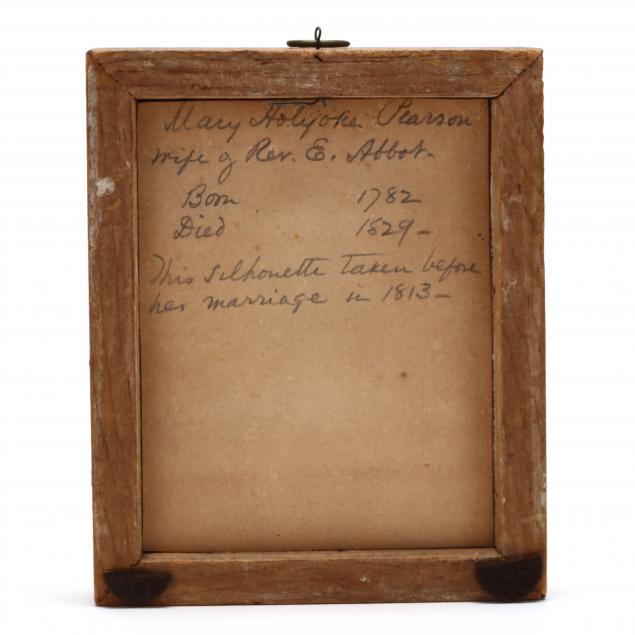 Mary Holyoke Pearson
wife of Rev. E. Abbot.
Born 1782
Died 1829 -
This silhouette taken before
her marriage in 1813 -